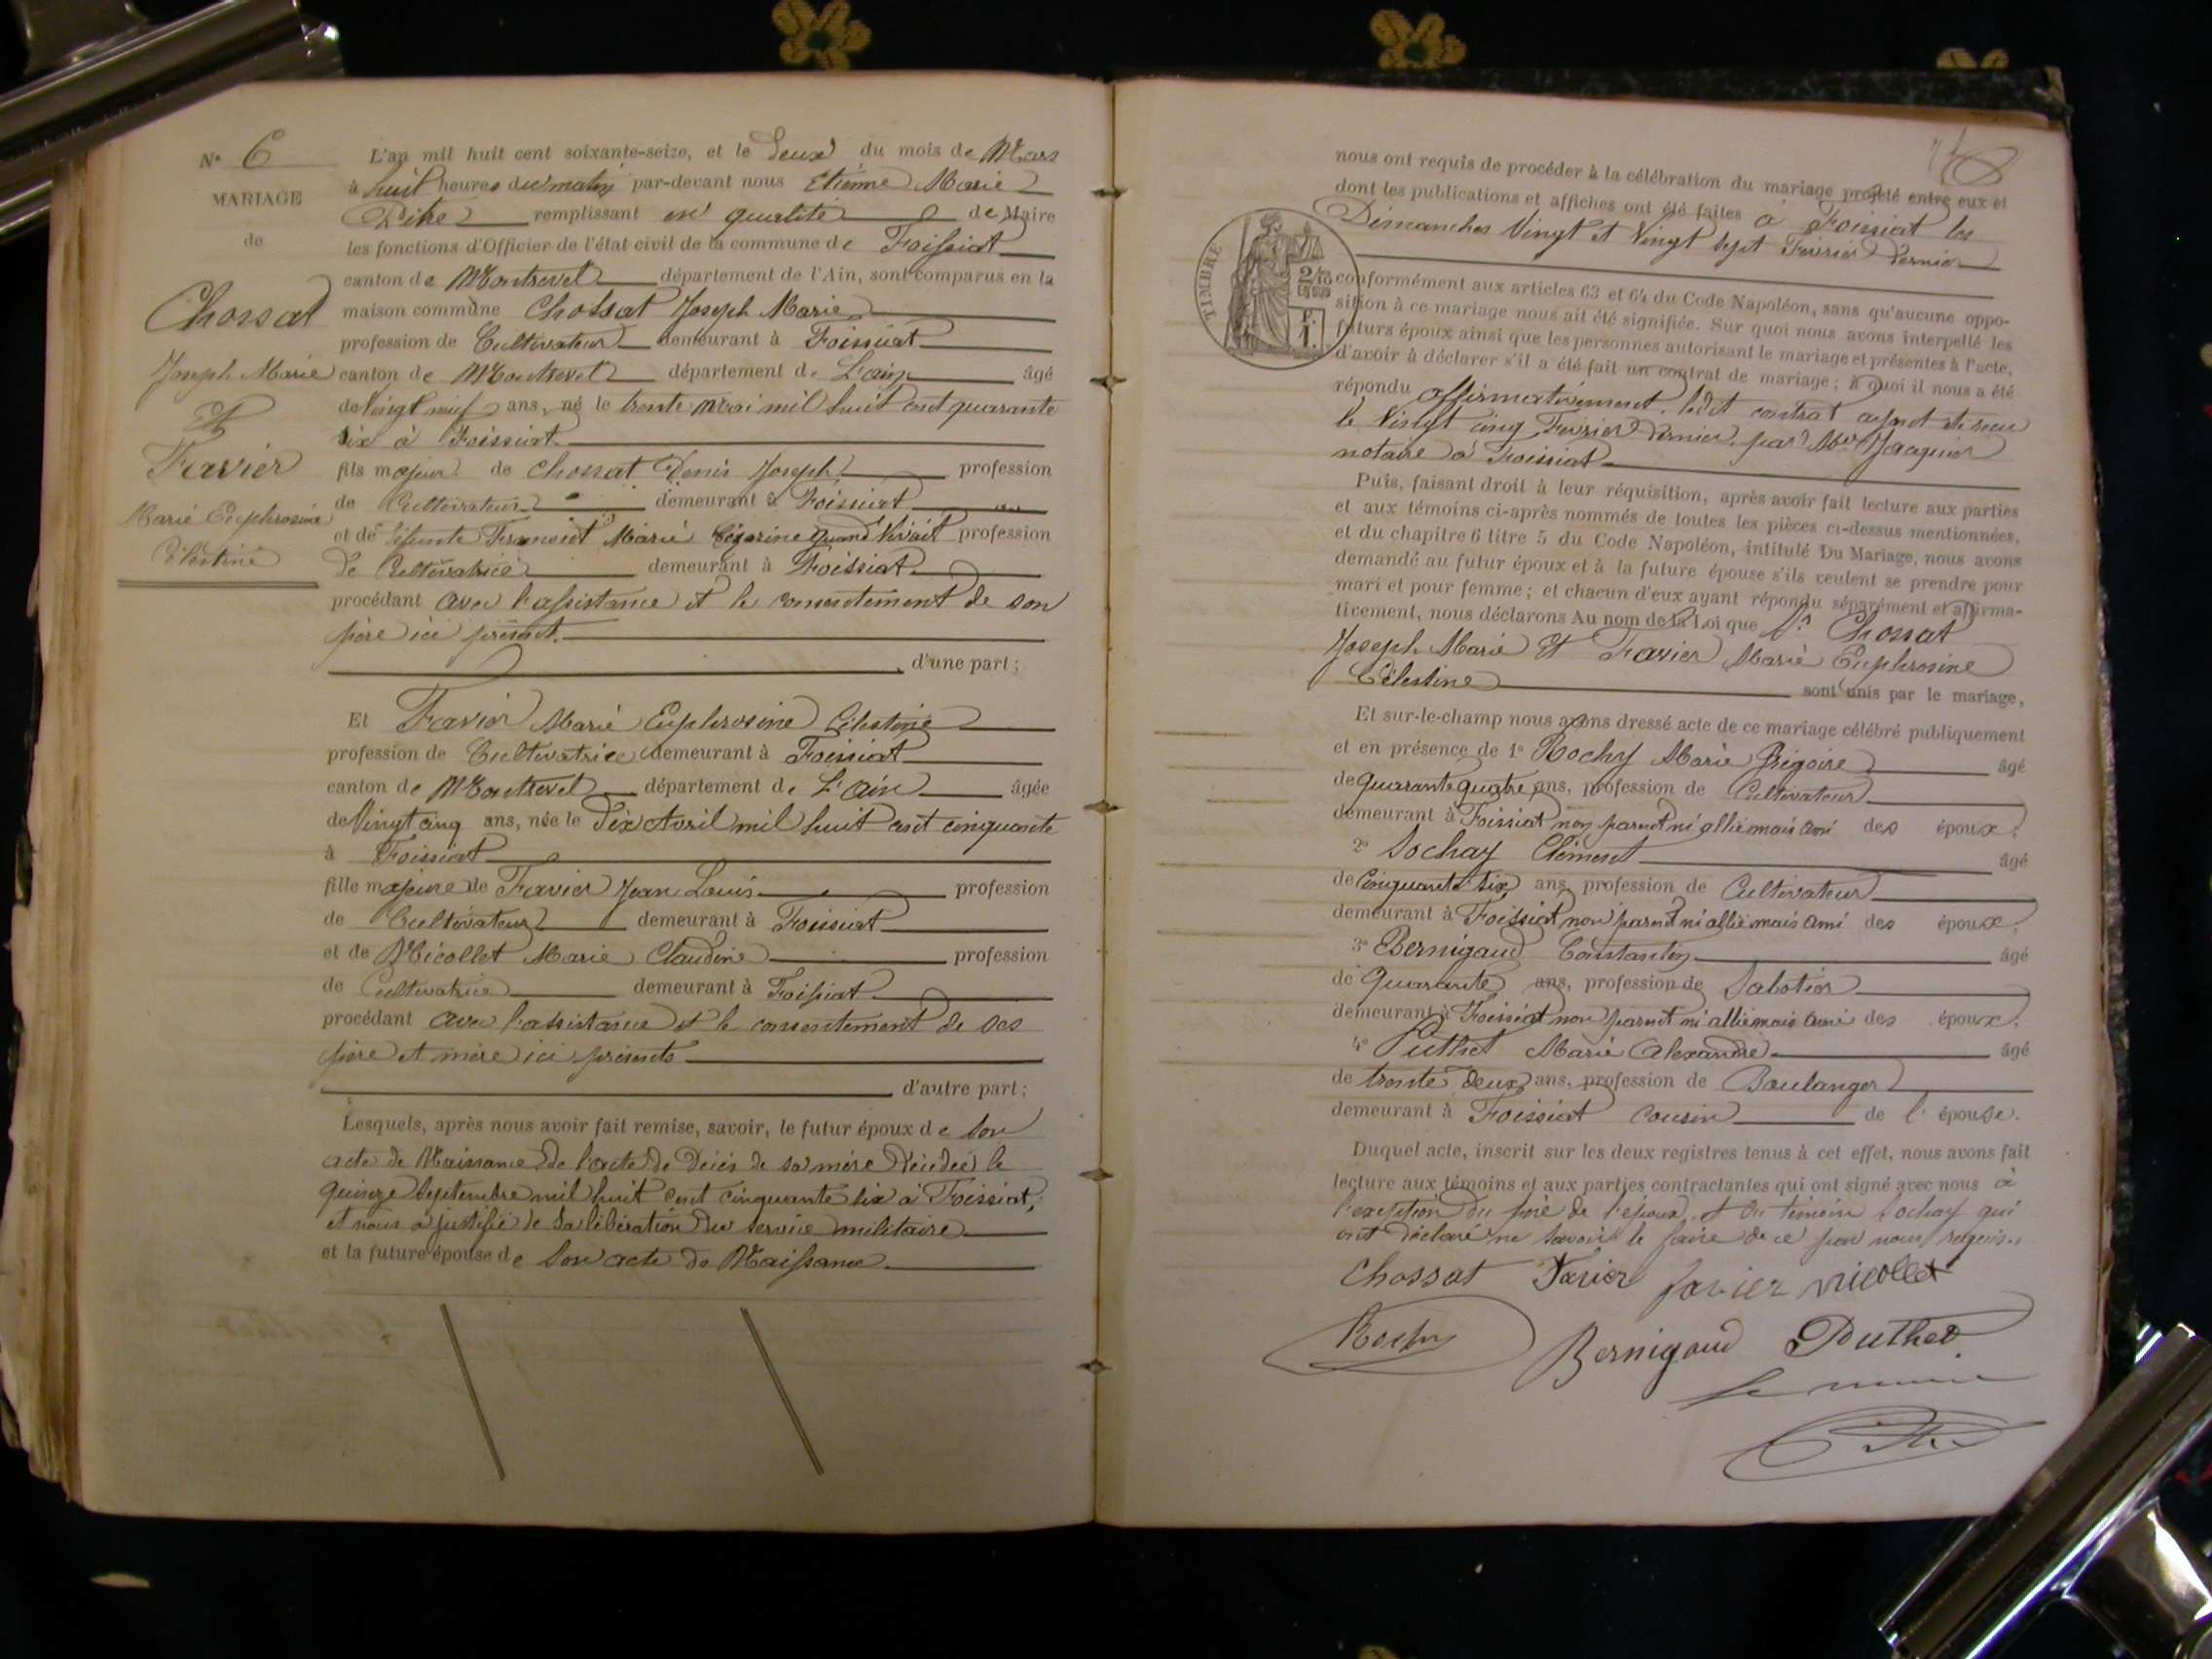 N° 6
MARIAGE
de
Chossat
Joseph Marie
Et
Favier
Marie Euphrosine
Célestine
L'an mil huit cent soixante-seize, et le deux du mois de Mars
à huit heures du matin par-devant nous Etienne Marie
remplissant en qualité de Maire
les fonctions d'Officier de l'état civil de la commune de Foissiat
canton de Montrevel département de l'Ain, sont comparus en la
maison commune Chossat Joseph Marie
profession de Cultivateur demeurant à Foissiat
canton de Montrevel département de L'ain âgé
de Vingt neuf ans, né le trente Mai mil huit cent quarante
six à Foissiat
fils majeur de Chossat Denis Joseph profession
de Cultivateur demeurant à Foissiat
et de défunte Marie quand vivait profession
de Cultivatrice demeurant à Foissiat
procédant avec l'assistance et le consentement de son
père ici présent.
d'une part ;
Et Favier Marie Euphrosine Célestine
profession de Cultivatrice demeurant à Foissiat
canton de Montrevel département de L'Ain âgée
de Vingt cinq ans, née le dix Avril mil huit cent cinquante
à Foissiat
fille majeure de Favier Jean Louis profession
de Cultivateur demeurant à Foissiat
et de Nicollet Marie Claudine profession
de Cultivatrice demeurant à Foissiat
procédant avec l'assistance et le consentement de ses
père et mère ici présents
d'autre part ;
Lesquels, après nous avoir fait remise, savoir, le futur époux de son
acte de Naissance de l'acte de décès de sa mère décédée le
quinze Septembre mil huit cent cinquante six à Foissiat,
et nous a justifié de sa libération du service militaire
et la future épouse de son acte de Naissance
nous ont requis de procéder à la célébration du mariage projeté entre eux et
dont les publications et affiches ont été faites à Foissiat les
Dimanches Vingt et Vingt Sept Février dernier
TIMBRE
conformément aux articles 63 et 64 du Code Napoléon, sans qu'aucune oppo-
sition à ce mariage nous ait été signifiée. Sur quoi nous avons interpellé les
futurs époux ainsi que les personnes autorisant le mariage et présentes à l'acte,
d'avoir à déclarer s'il a été fait un contrat de mariage ; à quoi il nous a été
répondu affirmativement. ledit contrat ayant été recu
le Vingt cinq Février dernier par Me Jacquier
notaire à Foissiat
Puis, faisant droit à leur réquisition, après avoir fait lecture aux parties
et aux témoins ci-après nommés de toutes les pièces ci-dessus mentionnées,
et du chapitre 6 titre 5 du Code Napoléon, intitulé Du Mariage, nous avons
demandé au futur époux et à la future épouse s'ils veulent se prendre pour
mari et pour femme ; et chacun d'eux ayant répondu séparément et affirma-
tivement, nous déclarons Au nom de la Loi que Chossat
Joseph Marie Et Favier Marie Euphrosine
Célestine sont unis par le mariage,
Et sur-le-champ nous avons dressé acte de ce mariage célébré publiquement
et en présence de 1° Rochy Marie Grégoire âgé
de quarante quatre ans, profession de Cultivateur
demeurant à Foissiat non parent ni allié mais ami des époux,
2° Sochay Clément âgé
de Cinquante six ans, profession de Cultivateur
demeurant à Foissiat non parent ni allié mais ami des époux,
3° Bernigaud Constantin âgé
de Quarante ans, profession de Sabotier
demeurant à Foissiat non parent ni allié mais ami des époux,
4° Puthet Marie Alexandre âgé
de trente deux ans, profession de Boulanger
demeurant à Foissiat cousin de l'épouse.
Duquel acte, inscrit sur les deux registres tenus à cet effet, nous avons fait
lecture aux témoins et aux parties contractantes qui ont signé avec nous à
l'exception du père de l'époux, et du témoin Sochay qui
ont déclaré ne savoir le faire de ce par nous requis.
Chossat Favier favier nicollet
Rochy Bernigaud Puthet
le maire